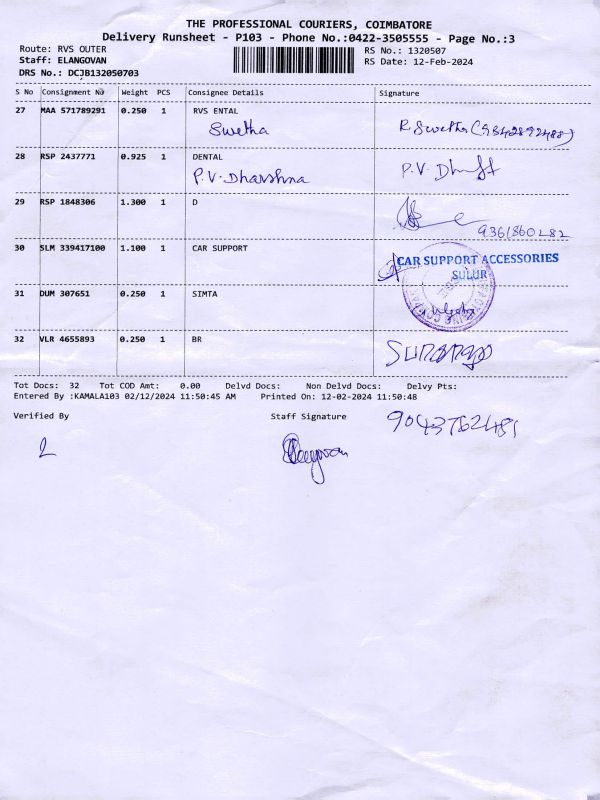 THE PROFESSIONAL COURIERS, COIMBATORE
Delivery Runsheet - P103 - Phone No.:0422-3505555 - Page No.:3
Route: RVS OUTER RS No.: 1320507
Staff: ELANGOVAN RS Date: 12-Feb-2024
DRS No.: DCJB132050703
S No Consignment No Weight PCS Consignee Details Signature
27 MAA 571789291 0.250 1 RVS ENTAL
Swetha R. Swetha (9342892488)
28 RSP 2437771 0.925 1 DENTAL
P.V. Dharshna P.V.
29 RSP 1848306 1.300 1 D
9361860282
30 SLM 339417100 1.100 1 CAR SUPPORT
CAR SUPPORT ACCESSORIES
SULUR
31 DUM 307651 0.250 1 SIMTA
32 VLR 4655893 0.250 1 BR
Tot Docs: 32 Tot COD Amt: 0.00 Delvd Docs: Non Delvd Docs: Delvy Pts:
Entered By :KAMALA103 02/12/2024 11:50:45 AM Printed On: 12-02-2024 11:50:48
Verified By Staff Signature